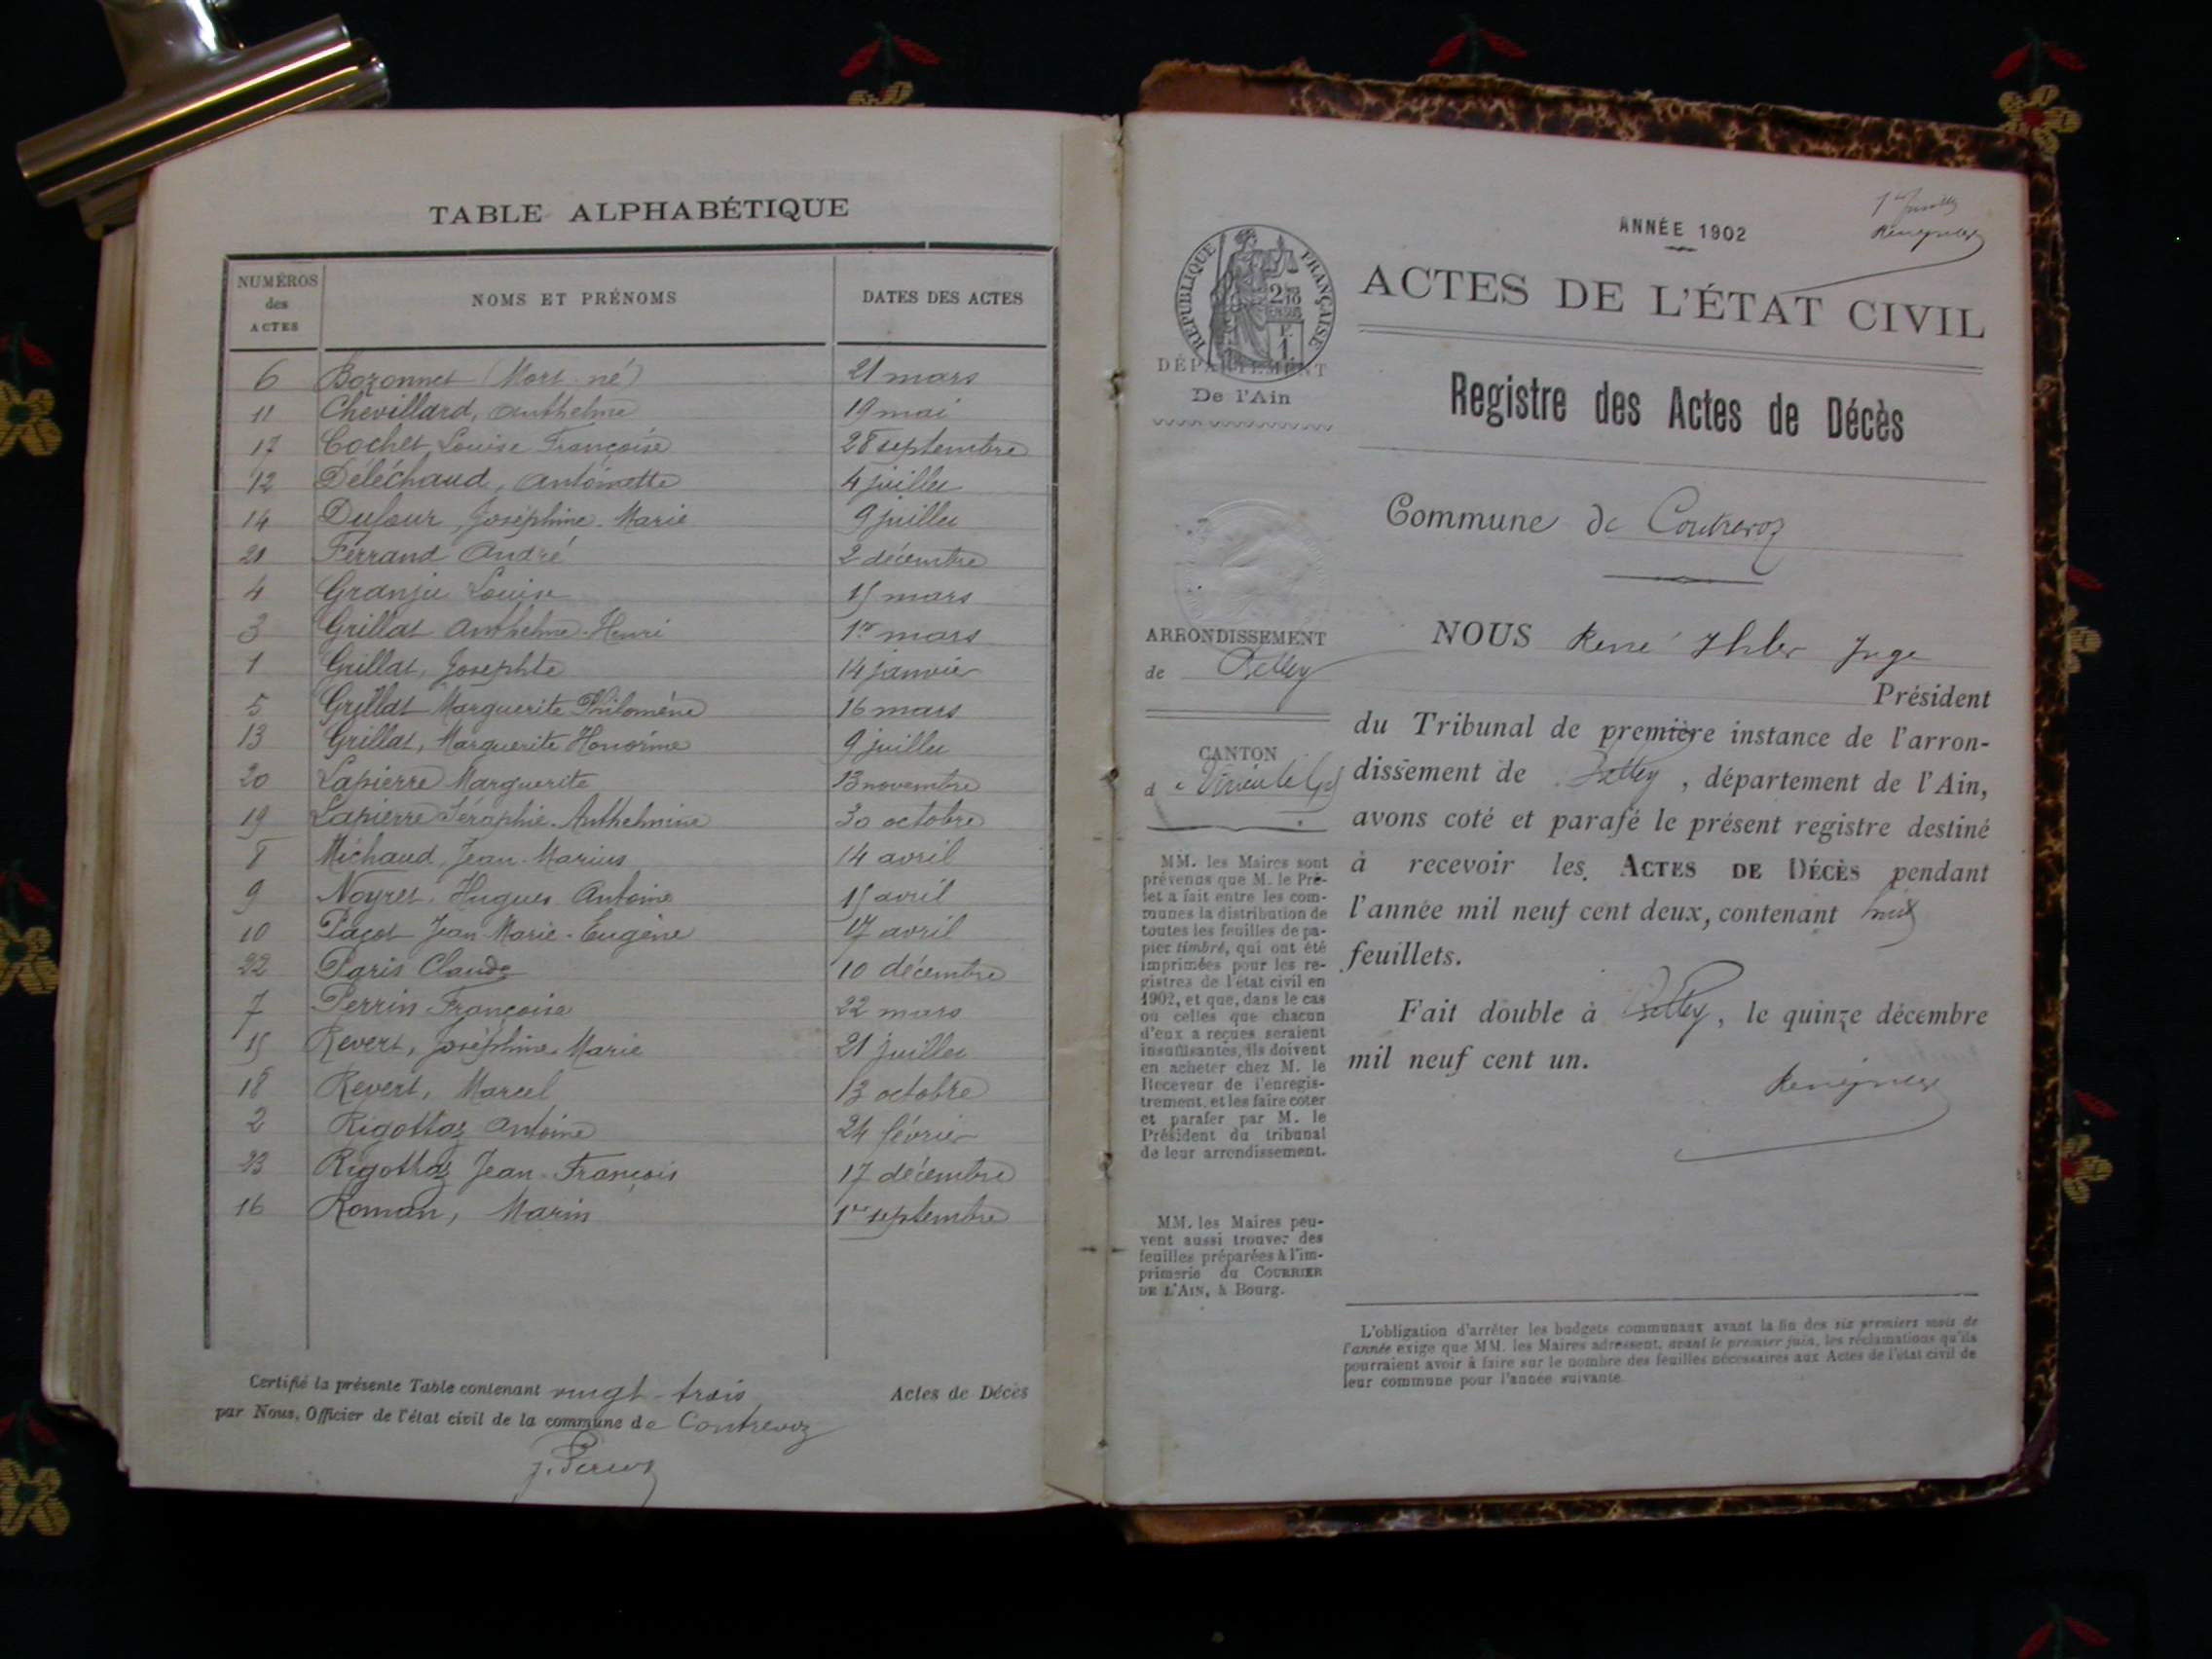 TABLE ALPHABÉTIQUE
NUMÉROS des ACTES NOMS ET PRÉNOMS DATES DES ACTES
6 Bozonnet (Mort-né) 21 mars
11 Chevillard, Anthelme 19 mai
17 Cochet Louise Françoise 28 septembre
12 Déléchaud, Antoinette 4 juillet
14 Dufour, Joséphine-Marie 9 juillet
21 Ferrand André 2 décembre
4 Granjé Louise 15 mars
3 Grillat Anthelme-Henri 1er mars
1 Grillat, Josephte 14 janvier
5 Grillat Marguerite Philomène 16 mars
13 Grillat, Marguerite Honorine 9 juillet
20 Lapierre Marguerite 13 novembre
19 Lapierre Séraphie-Anthelmine 30 octobre
8 Michaud, Jean-Marius 14 avril
9 Noyret, Hugues Antoine 15 avril
10 Pacot Jean-Marie-Eugène 17 avril
22 Paris Claude 10 décembre
7 Perrin Françoise 22 mars
15 Revert, Joséphine Marie 21 juillet
18 Revert, Marcel 13 octobre
2 Rigottaz Antoine 24 février
23 Rigottaz Jean-François 17 décembre
16 Roman, Marin 1er septembre
Certifié la présente Table contenant vingt-trois Actes de Décès
par Nous, Officier de l'état civil de la commune de Contrevoz
ANNÉE 1902
RÉPUBLIQUE FRANÇAISE
ACTES DE L'ÉTAT CIVIL
DÉPARTEMENT
De l'Ain
Registre des Actes de Décès
Commune de Contrevoz
ARRONDISSEMENT
de Belley
CANTON
de Virieu le Gd
MM. les Maires sont
prévenus que M. le Pré-
fet a fait entre les com-
munes la distribution de
toutes les feuilles de pa-
pier timbré, qui ont été
imprimées pour les re-
gistres de l'état civil en
1902, et que, dans le cas
où celles que chacun
d'eux a reçues seraient
insuffisantes, ils doivent
en acheter chez M. le
Receveur de l'enregis-
trement, et les faire coter
et parafer par M. le
Président du tribunal
de leur arrondissement.
MM. les Maires peu-
vent aussi trouver des
feuilles préparées à l'im-
primerie du COURRIER
DE L'AIN, à Bourg.
NOUS René Ihler Juge
Président
du Tribunal de première instance de l'arron-
dissement de Belley, département de l'Ain,
avons coté et parafé le présent registre destiné
à recevoir les ACTES DE DÉCÈS pendant
l'année mil neuf cent deux, contenant huit
feuillets.
Fait double à Belley, le quinze décembre
mil neuf cent un.
L'obligation d'arrêter les budgets communaux avant la fin des six premiers mois de
l'année exige que MM. les Maires adressent, avant le premier juin, les réclamations qu'ils
pourraient avoir à faire sur le nombre des feuilles nécessaires aux Actes de l'état civil de
leur commune pour l'année suivante.